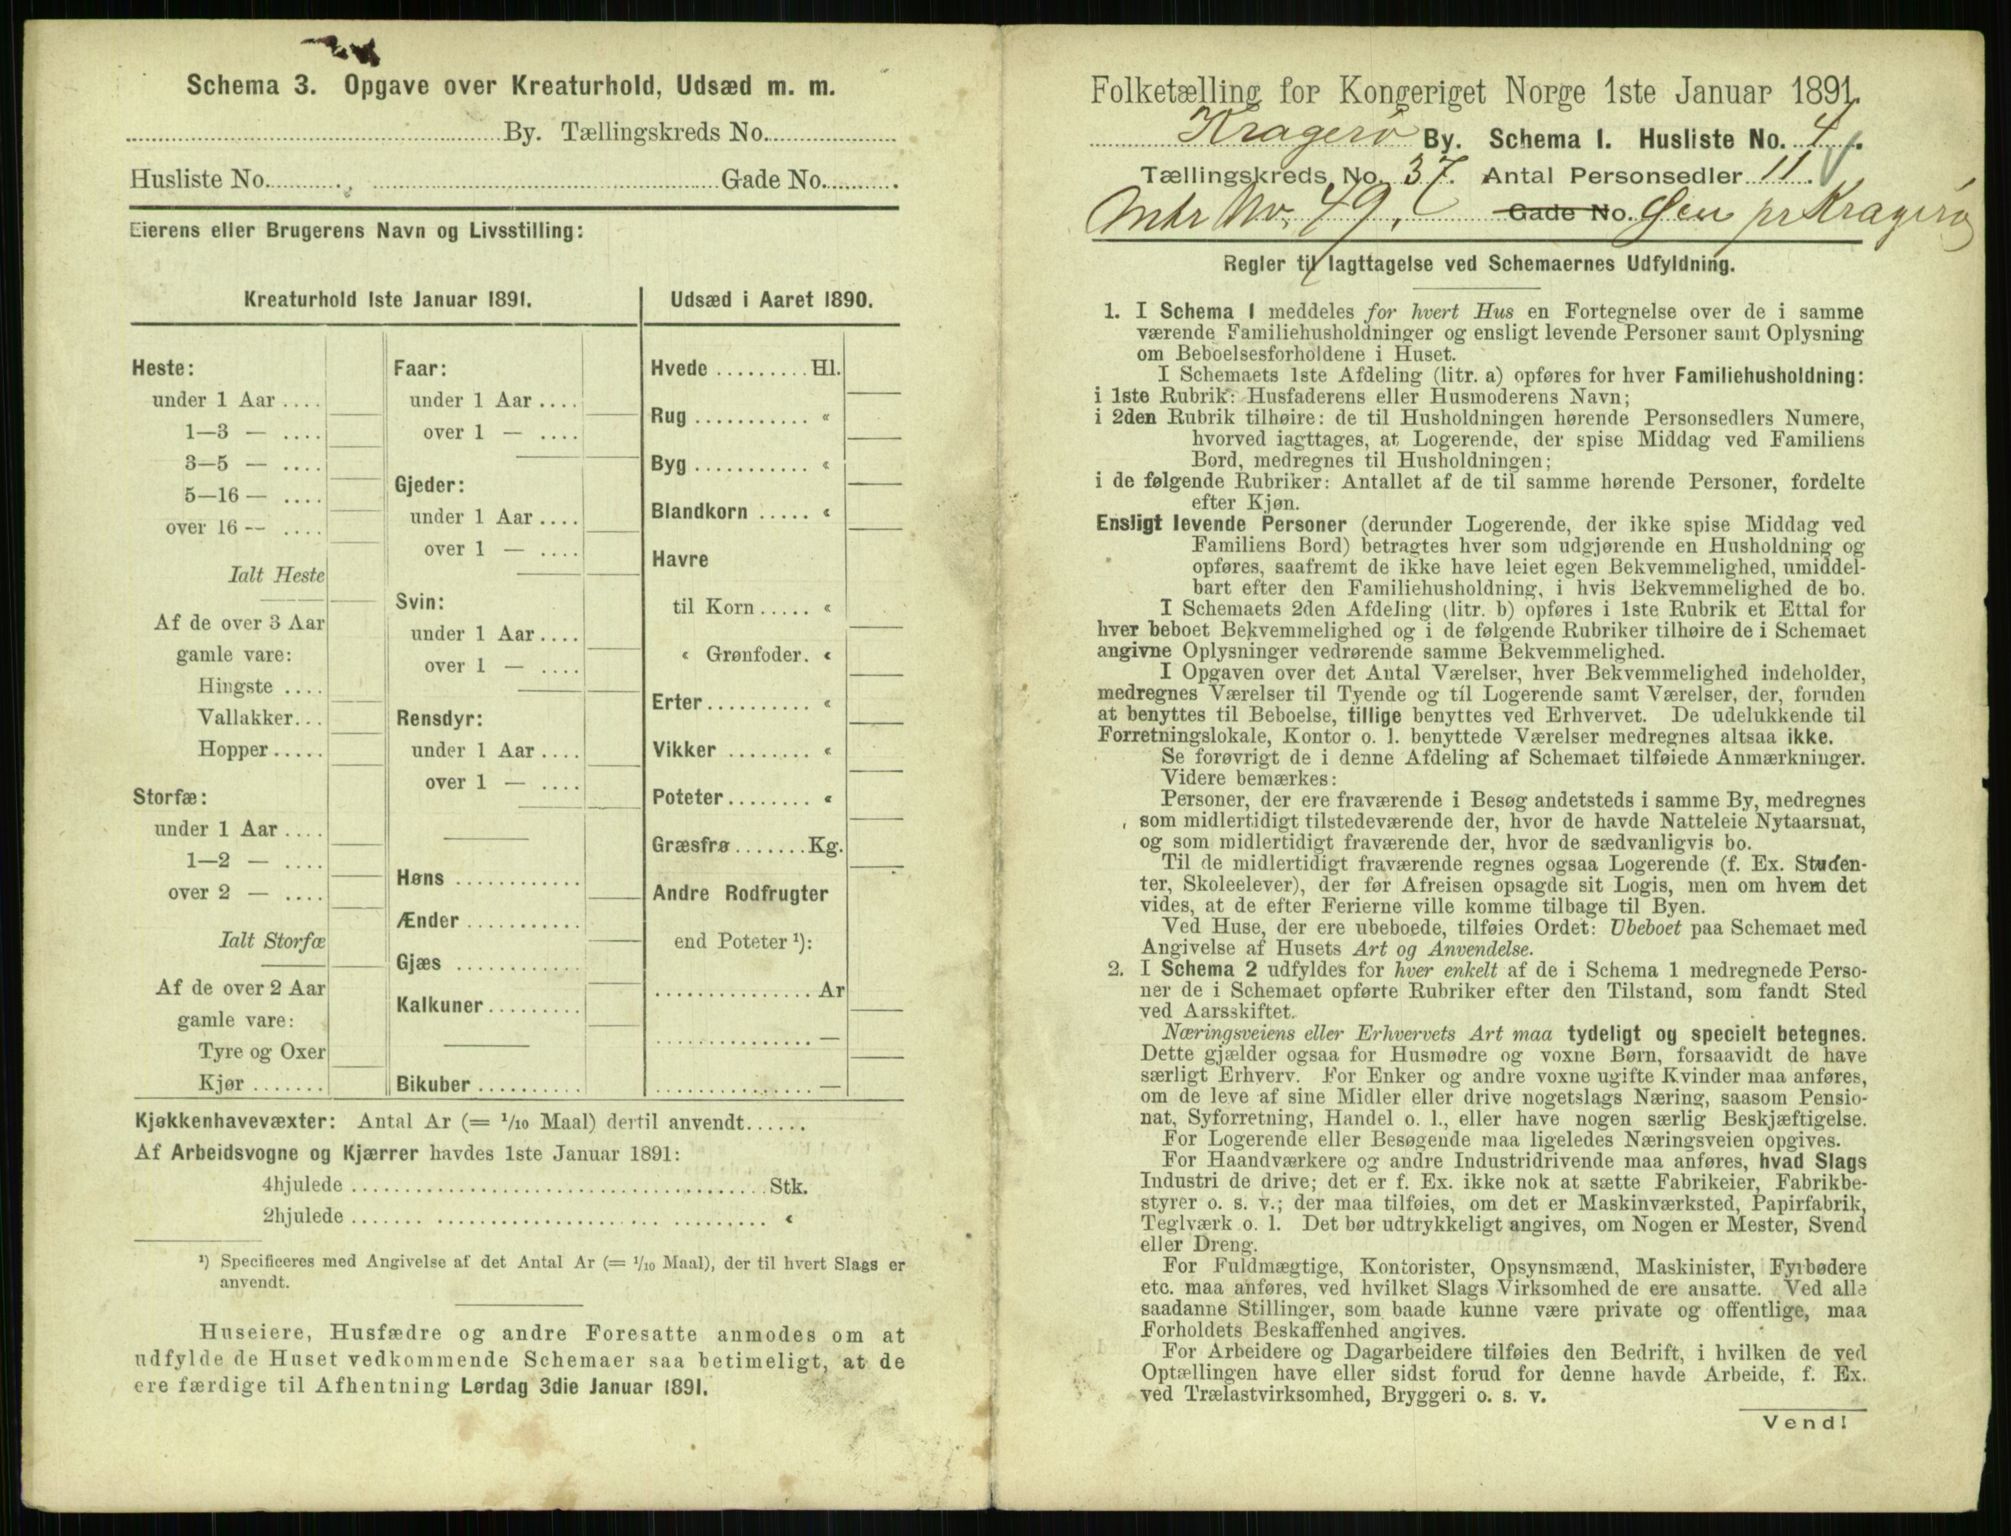 Schema 3. Opgave over Kreaturhold, Udsæd m. m.
By. Tællingskreds No.
Husliste No. Gade No.
Eierens eller Brugerens Navn og Livsstilling:
Kreaturhold 1ste Januar 1891.
Heste:
under 1 Aar ....
1—3 — ....
3—5 — ....
5—16 — ....
over 16 — ....
Ialt Heste
Af de over 3 Aar
gamle vare:
Hingste ....
Vallakker...
Hopper.....
Storfæ:
under 1 Aar ....
1—2 — ....
over 2 — ....
Ialt Storfæ
Af de over 2 Aar
gamle vare:
Tyre og Oxer
Kjør .......
Faar:
under 1 Aar ....
over 1 — ....
Gjeder:
under 1 Aar ....
over 1 — ....
Svin:
under 1 Aar ....
over 1 — ....
Rensdyr:
under 1 Aar ....
over 1 — ....
Høns ............
Ænder ...........
Gjæs ............
Kalkuner .........
Bikuber ..........
Udsæd i Aaret 1890.
Hvede ......... Hl.
Rug ........... «
Byg ........... «
Blandkorn ..... «
Havre
til Korn ..... «
« Grønfoder. «
Erter .......... «
Vikker ........ «
Poteter ........ «
Græsfrø ....... Kg.
Andre Rodfrugter
end Poteter ¹):
............... Ar
............... —
............... —
Kjøkkenhavevæxter: Antal Ar (= 1/10 Maal) dertil anvendt......
Af Arbeidsvogne og Kjærrer havdes 1ste Januar 1891:
4hjulede ...................................... Stk.
2hjulede ...................................... «
¹) Specificeres med Angivelse af det Antal Ar (= 1/10 Maal), der til hvert Slags er
anvendt.
Huseiere, Husfædre og andre Foresatte anmodes om at
udfylde de Huset vedkommende Schemaer saa betimeligt, at de
ere færdige til Afhentning Lørdag 3die Januar 1891.
Folketælling for Kongeriget Norge 1ste Januar 1891.
Kragerø By. Schema 1. Husliste No. 4.
Tællingskreds No. 37. Antal Personsedler 11.
Mtr No. 49. Gade No. Øen pr Kragerø
Regler til Iagttagelse ved Schemaernes Udfyldning.
1. I Schema 1 meddeles for hvert Hus en Fortegnelse over de i samme
værende Familiehusholdninger og ensligt levende Personer samt Oplysning
om Beboelsesforholdene i Huset.
I Schemaets 1ste Afdeling (litr. a) opføres for hver Familiehusholdning:
i 1ste Rubrik: Husfaderens eller Husmoderens Navn;
i 2den Rubrik tilhøire: de til Husholdningen hørende Personsedlers Numere,
hvorved iagttages, at Logerende, der spise Middag ved Familiens
Bord, medregnes til Husholdningen;
i de følgende Rubriker: Antallet af de til samme hørende Personer, fordelte
efter Kjøn.
Ensligt levende Personer (derunder Logerende, der ikke spise Middag ved
Familiens Bord) betragtes hver som udgjørende en Husholdning og
opføres, saafremt de ikke have leiet egen Bekvemmelighed, umiddel-
bart efter den Familiehusholdning, i hvis Bekvemmelighed de bo.
I Schemaets 2den Afdeling (litr. b) opføres i 1ste Rubrik et Ettal for
hver beboet Bekvemmelighed og i de følgende Rubriker tilhøire de i Schemaet
angivne Oplysninger vedrørende samme Bekvemmelighed.
I Opgaven over det Antal Værelser, hver Bekvemmelighed indeholder,
medregnes Værelser til Tyende og til Logerende samt Værelser, der, foruden
at benyttes til Beboelse, tillige benyttes ved Erhvervet. De udelukkende til
Forretningslokale, Kontor o. l. benyttede Værelser medregnes altsaa ikke.
Se forøvrigt de i denne Afdeling af Schemaet tilføiede Anmærkninger.
Videre bemærkes:
Personer, der ere fraværende i Besøg andetsteds i samme By, medregnes
som midlertidigt tilstedeværende der, hvor de havde Natteleie Nytaarsnat,
og som midlertidigt fraværende der, hvor de sædvanligvis bo.
Til de midlertidigt fraværende regnes ogsaa Logerende (f. Ex. Studen-
ter, Skoleelever), der før Afreisen opsagde sit Logis, men om hvem det
vides, at de efter Ferierne ville komme tilbage til Byen.
Ved Huse, der ere ubeboede, tilføies Ordet: Ubeboet paa Schemaet med
Angivelse af Husets Art og Anvendelse.
2. I Schema 2 udfyldes for hver enkelt af de i Schema 1 medregnede Perso-
ner de i Schemaet opførte Rubriker efter den Tilstand, som fandt Sted
ved Aarsskiftet.
Næringsveiens eller Erhvervets Art maa tydeligt og specielt betegnes.
Dette gjælder ogsaa for Husmødre og voxne Børn, forsaavidt de have
særligt Erhverv. For Enker og andre voxne ugifte Kvinder maa anføres,
om de leve af sine Midler eller drive nogetslags Næring, saasom Pensio-
nat, Syforretning, Handel o. l., eller have nogen særlig Beskjæftigelse.
For Logerende eller Besøgende maa ligeledes Næringsveien opgives.
For Haandværkere og andre Industridrivende maa anføres, hvad Slags
Industri de drive; det er f. Ex. ikke nok at sætte Fabrikeier, Fabrikbe-
styrer o. s. v.; der maa tilføies, om det er Maskinværksted, Papirfabrik,
Teglværk o. l. Det bør udtrykkeligt angives, om Nogen er Mester, Svend
eller Dreng.
For Fuldmægtige, Kontorister, Opsynsmænd, Maskinister, Fyrbødere
etc. maa anføres, ved hvilket Slags Virksomhed de ere ansatte. Ved alle
saadanne Stillinger, som baade kunne være private og offentlige, maa
Forholdets Beskaffenhed angives.
For Arbeidere og Dagarbeidere tilføies den Bedrift, i hvilken de ved
Optællingen have eller sidst forud for denne havde Arbeide, f. Ex.
ved Trælastvirksomhed, Bryggeri o. s. v.
Vend!